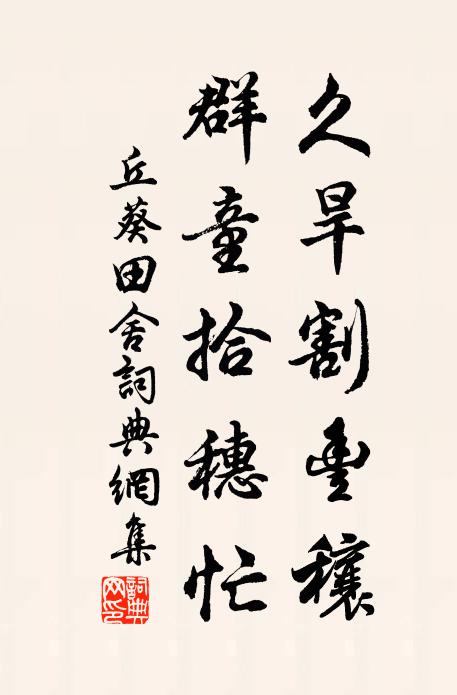 久旱割豊穰
群童拾穗忙
丘葵田舍詞典網集
詞典網印